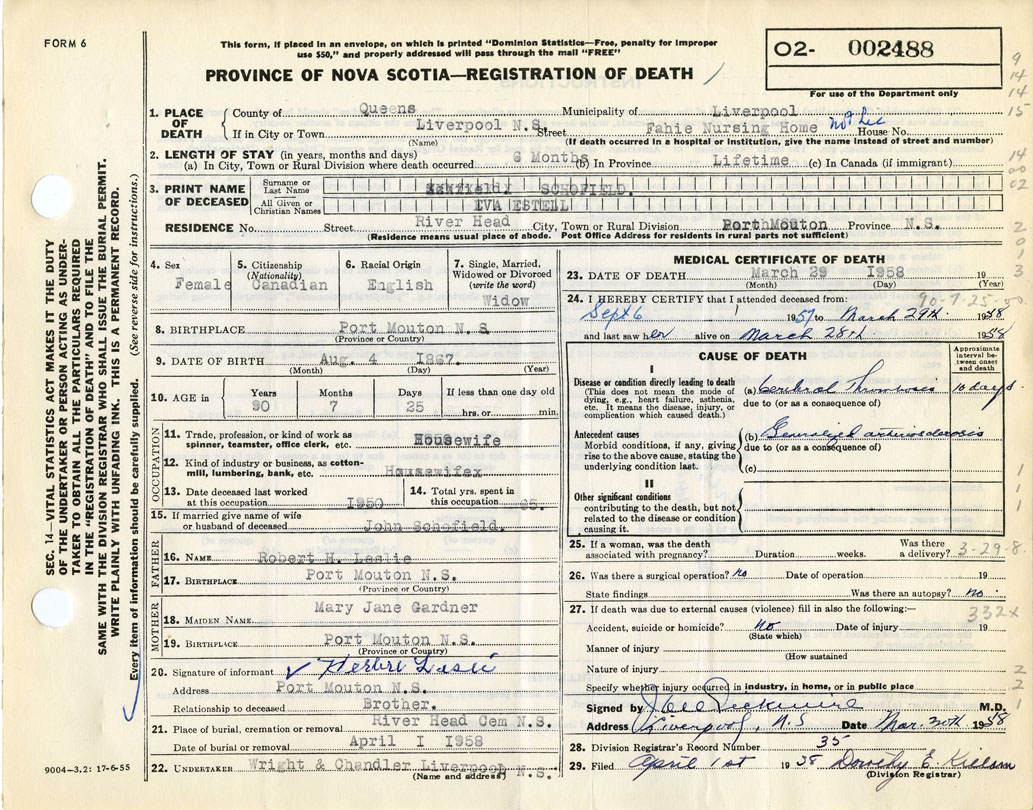 FORM 6
This form, if placed in an envelope, on which is printed "Dominion Statistics—Free, penalty for improper
use $50," and properly addressed will pass through the mail "FREE"
PROVINCE OF NOVA SCOTIA—REGISTRATION OF DEATH
02- 002488
For use of the Department only
1. PLACE OF DEATH
County of Queens Municipality of Liverpool
If in City or Town Liverpool N.S. Street Fahie Nursing Home not Lic House No.
(Name) (If death occurred in a hospital or institution, give the name instead of street and number)
2. LENGTH OF STAY (in years, months and days)
(a) In City, Town or Rural Division where death occurred 6 Months (b) In Province Lifetime (c) In Canada (if immigrant)
3. PRINT NAME OF DECEASED
Surname or Last Name SCHOFIELD.
All Given or Christian Names EVA ESTELL
RESIDENCE No. Street River Head City, Town or Rural Division Port Mouton Province N.S.
(Residence means usual place of abode. Post Office Address for residents in rural parts not sufficient)
4. Sex Female
5. Citizenship (Nationality) Canadian
6. Racial Origin English
7. Single, Married, Widowed or Divorced (write the word) Widow
8. BIRTHPLACE Port Mouton N.S.
(Province or Country)
9. DATE OF BIRTH Aug. 4 1867.
(Month) (Day) (Year)
10. AGE in Years 90 Months 7 Days 25 If less than one day old hrs. or min.
OCCUPATION
11. Trade, profession, or kind of work as spinner, teamster, office clerk, etc. Housewife
12. Kind of industry or business, as cotton-mill, lumbering, bank, etc. Housewifex
13. Date deceased last worked at this occupation I950
14. Total yrs. spent in this occupation 65.
15. If married give name of wife or husband of deceased John Schofield.
FATHER
16. NAME Robert H. Leslie
17. BIRTHPLACE Port Mouton N.S.
(Province or Country)
MOTHER
18. MAIDEN NAME Mary Jane Gardner
19. BIRTHPLACE Port Mouton N.S.
(Province or Country)
20. Signature of informant Herbert Leslie
Address Port Mouton N.S.
Relationship to deceased Brother.
21. Place of burial, cremation or removal River Head Cem N.S.
Date of burial or removal April I I958
22. UNDERTAKER Wright & Chandler Liverpool N.S.
(Name and address)
MEDICAL CERTIFICATE OF DEATH
23. DATE OF DEATH March 29 I958 19
(Month) (Day) (Year)
24. I HEREBY CERTIFY that I attended deceased from: 90-7-25-00
Sept 6 1957 to March 29th 1958
and last saw her alive on March 28th 1958
CAUSE OF DEATH
Approximate interval between onset and death
I
Disease or condition directly leading to death
(This does not mean the mode of dying, e.g., heart failure, asthenia, etc. It means the disease, injury, or complication which caused death.)
(a) Cerebral Thrombosis 10 days
due to (or as a consequence of)
Antecedent causes
Morbid conditions, if any, giving rise to the above cause, stating the underlying condition last.
(b) Generalized arteriosclerosis
due to (or as a consequence of)
(c)
II
Other significant conditions
contributing to the death, but not related to the disease or condition causing it.
25. If a woman, was the death associated with pregnancy? Duration weeks. Was there a delivery? 3-29-8
26. Was there a surgical operation? no Date of operation 19
State findings Was there an autopsy? no
27. If death was due to external causes (violence) fill in also the following:— 332x
Accident, suicide or homicide? no Date of injury 19
(State which)
Manner of injury
(How sustained
Nature of injury
Specify whether injury occurred in industry, in home, or in public place
Signed by M.D.
Address Liverpool, N.S Date Mar. 30th 1958
28. Division Registrar's Record Number 35
29. Filed April 1st 1958 Dorothy E. Killam
(Division Registrar)
SEC. 14—VITAL STATISTICS ACT MAKES IT THE DUTY
OF THE UNDERTAKER OR PERSON ACTING AS UNDER-
TAKER TO OBTAIN ALL THE PARTICULARS REQUIRED
IN THE "REGISTRATION OF DEATH" AND TO FILE THE
SAME WITH THE DIVISION REGISTRAR WHO SHALL ISSUE THE BURIAL PERMIT.
WRITE PLAINLY WITH UNFADING INK. THIS IS A PERMANENT RECORD.
Every item of information should be carefully supplied. (See reverse side for instructions.)
9004—3.2: 17-6-55
9
14
14
15
14
00
02
2
0
1
3
1
1
1
2
2
1